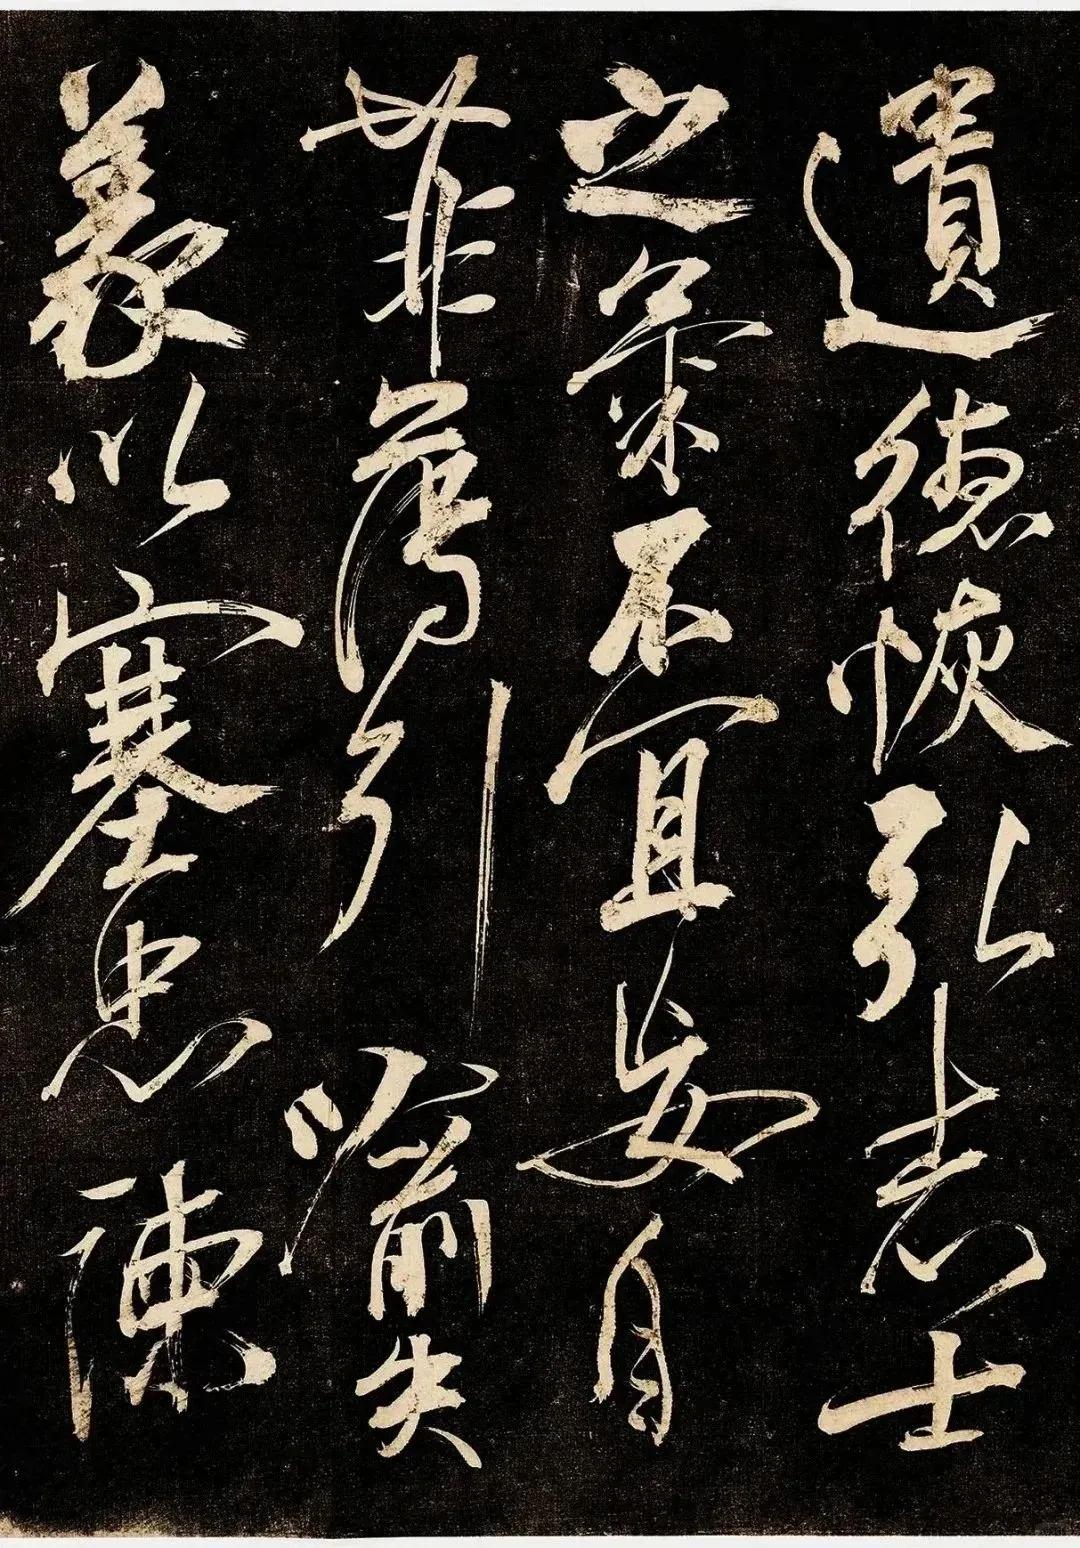 遺德恢弘志士
之氣不宜妄自
菲薄引喻失
義以塞忠諫